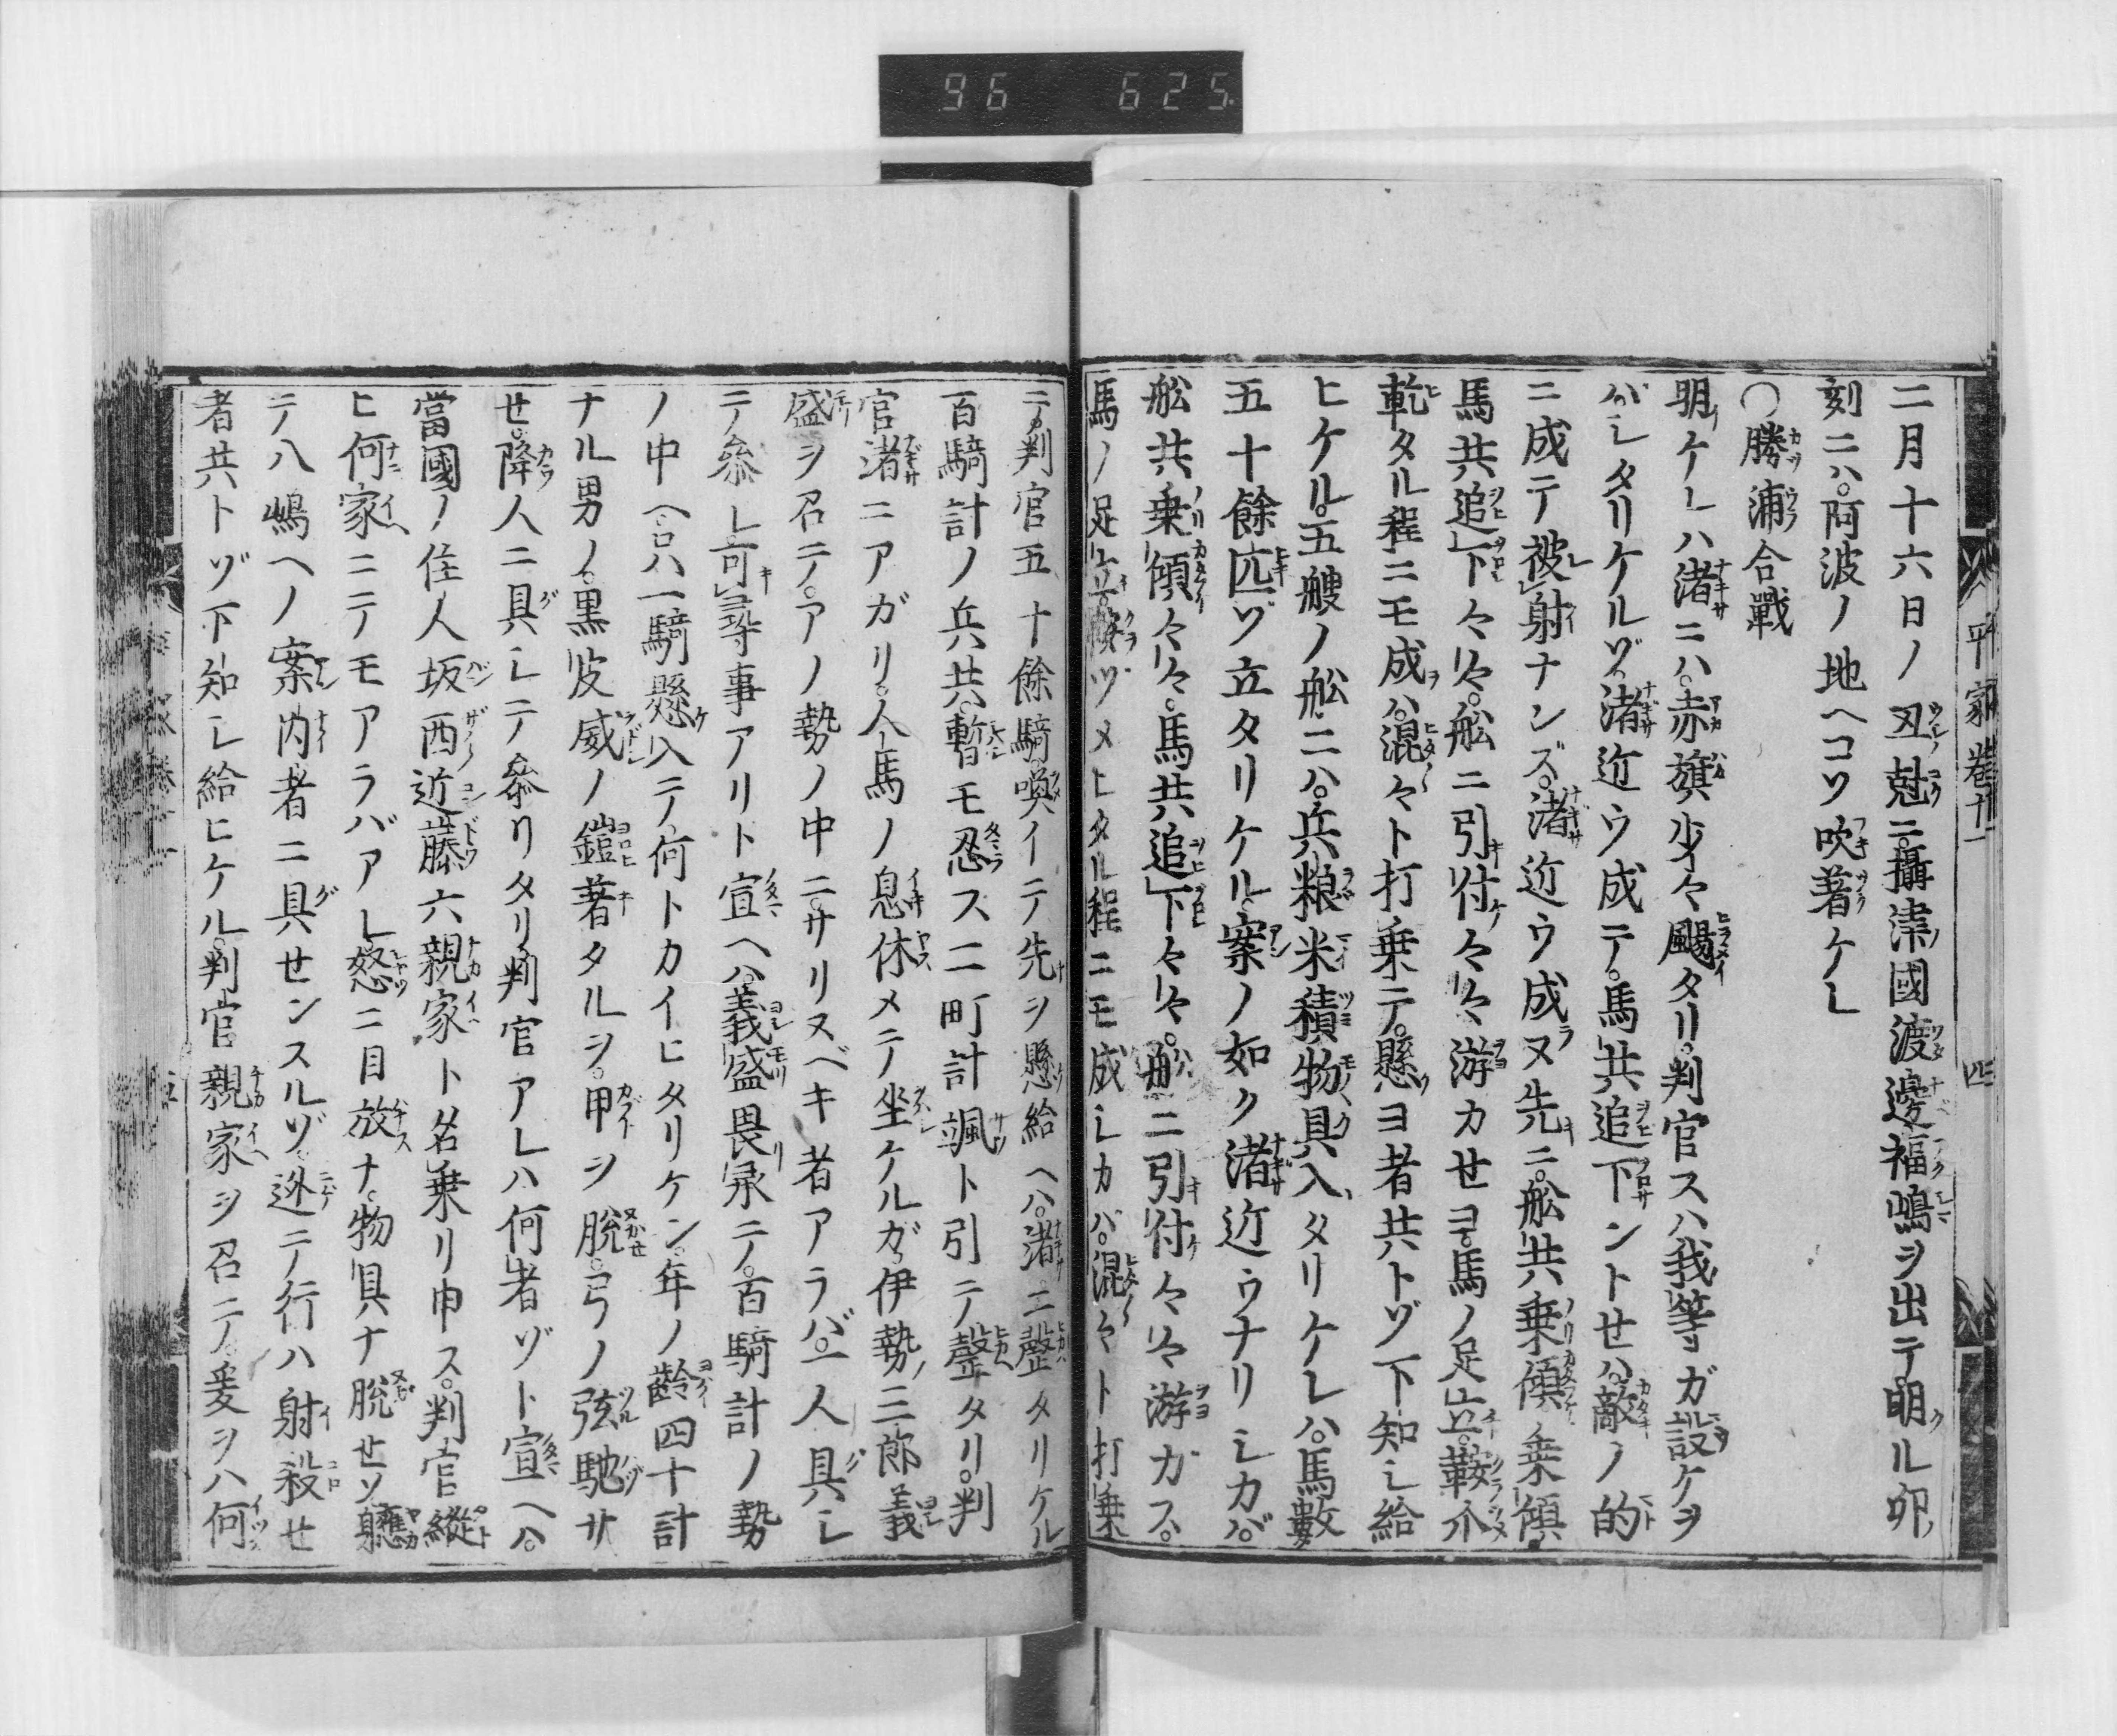 96 625
平家巻十一 四
二月十六日ノ丑剋ニ攝津國渡邊福嶋ヲ出テ明ル卯ノ
刻ニハ。阿波ノ地ヘコソ吹著ケレ
〇勝浦合戰
明ケレハ渚ニハ。赤旗少々颺タリ。判官スハ我等ガ設ケヲ
バシタリケルゾ。渚近ウ成テ。馬共追下ントセハ。敵ノ的
ニ成テ被射ナンズ。渚近ウ成ヌ先ニ。舩共乗傾乗傾
馬共追下々々。舩ニ引付々々游カセヨ。馬ノ足立。鞍爪
乾タル程ニモ成ハ。混々ト打乗テ。懸ヨ者共トゾ下知シ給
ヒケル。五艘ノ舩ニハ。兵粮米積物具入タリケレハ。馬數
五十餘匹ゾ立タリケル。案ノ如ク渚近ウナリシカバ。
舩共乗傾々々。馬共追下々々。舩ニ引付々々游ガス。
馬ノ足立。鞍ヅメヒタル程ニモ成シカバ。混々ト打乗
テ。判官五十餘騎喚イテ先ヲ懸給ヘハ。渚ニ[整]タリケル
百騎計ノ兵共。暫モ忍ス二町計颯ト引テ[整]タリ。判
官渚ニアガリ。人馬ノ息休メテ坐ケルガ。伊勢三郎義
盛ヲ召テ。アノ勢ノ中ニ。サリヌベキ者アラバ。一人具シ
テ参レ可尋事アリト宣ヘハ。義盛畏承テ。百騎計ノ勢
ノ中ヘ。只一騎懸入テ何トカイヒタリケン。年ノ齡四十計
ナル男ノ。黒皮威ノ鎧著タルヲ。甲ヲ脱。弓ノ弦弛サ
せ。降人ニ具シテ参リタリ。判官アレハ何者ゾト宣ヘハ。
當國ノ住人坂西近藤六親家ト名乗リ申ス。判官縦
ヒ何家ニテモアラバアレ。怒ニ目放ナ。物具ナ脱せソ。軈
テ八嶋ヘノ案内者ニ具せンスルゾ。逃テ行ハ射殺せ
者共トゾ下知シ給ヒケル。判官親家ヲ召テ。爰ヲハ何